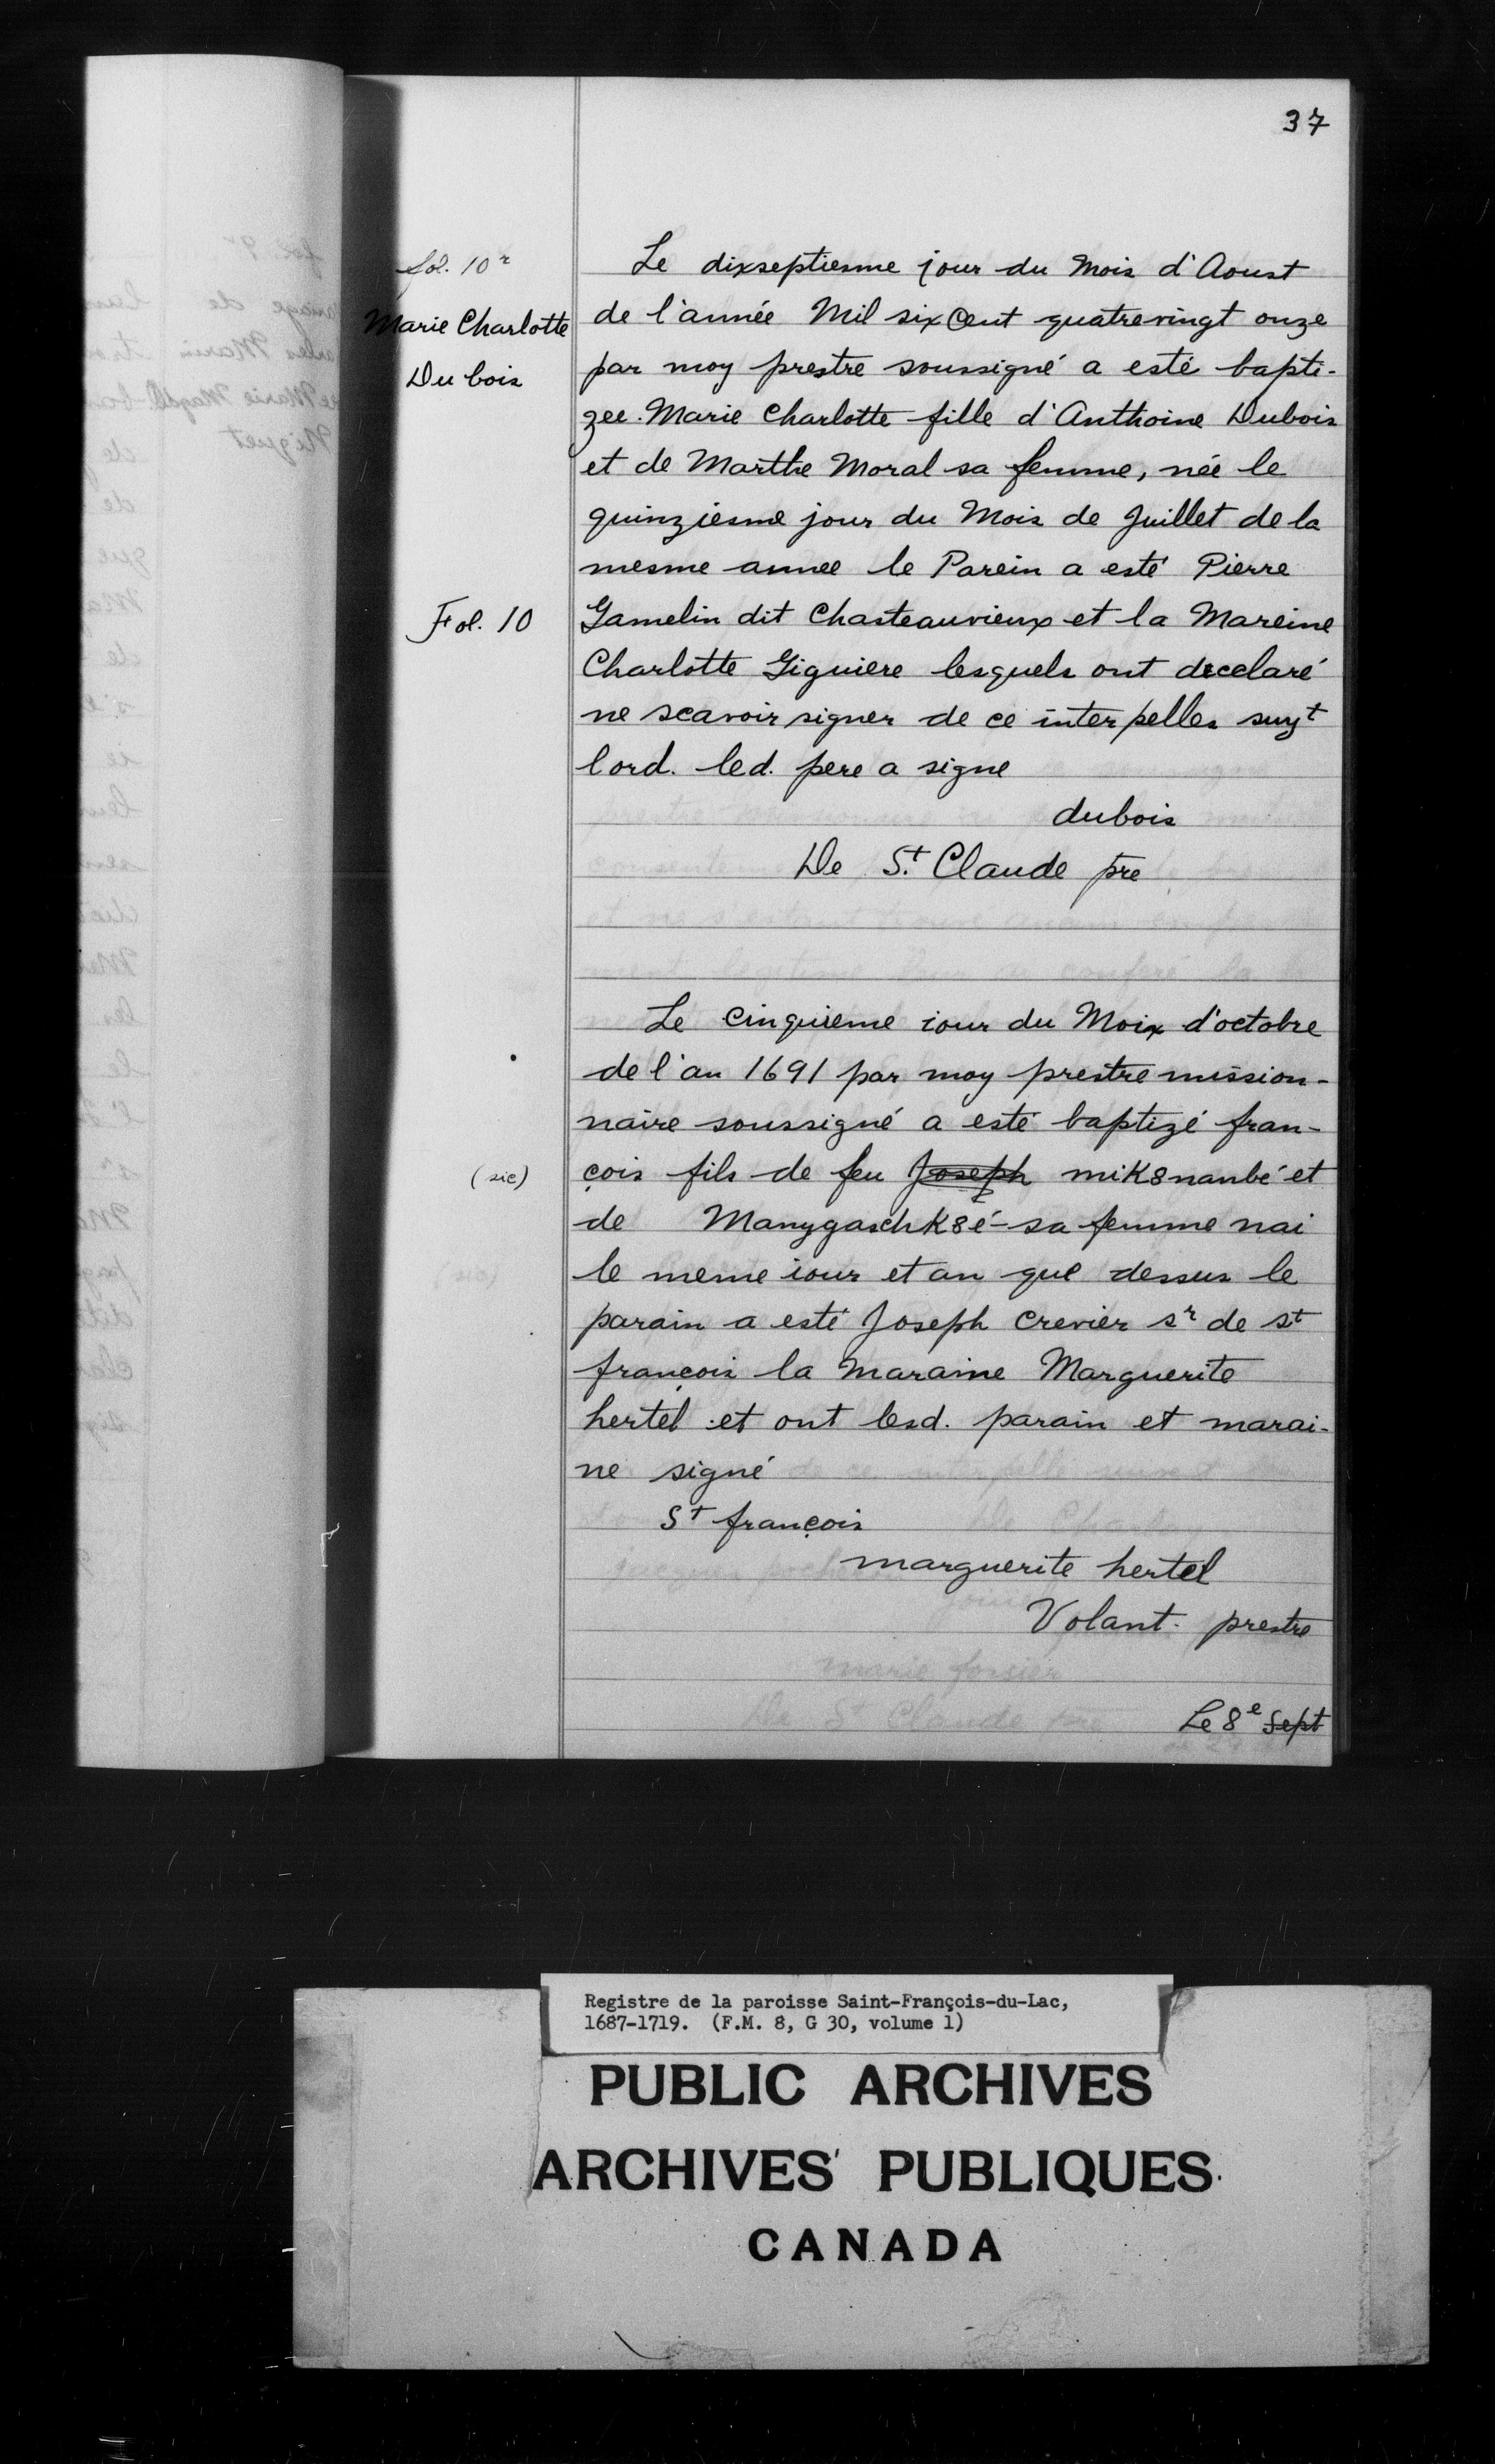 37
fol. 10r
Marie Charlotte
Du bois
Le dixseptiesme jour du Mois d'Aoust
de l'année Mil six Cent quatrevingt onze
par moy prestre soussigné a esté bapti-
zee. Marie Charlotte fille d'Anthoine Dubois
et de Marthe Moral sa femme, née le
quinziesme jour du Mois de Juillet de la
mesme annee le Parein a esté Pierre
Fol. 10
Gamelin dit Chasteauvieux et la Mareine
Charlotte Giguiere lesquels ont decelaré
ne scavoir signer de ce interpelles suyt
lord. led. pere a signe
dubois
De St. Claude pre
Le Cinquieme iour du Moix d'octobre
de l'an 1691 par moy prestre mission-
naire soussigné a esté baptizé fran-
(sic)
çois fils de feu Joseph miK8nanbé et
de ManygaschK8é sa femme nai
le meme iour et an que dessus le
parain a esté Joseph Crevier sr de st
françois la Maraine Marguerite
hertel et ont lesd. parain et marai-
ne signé
St françois
marguerite hertel
Volant. prestre
Le 8e Sept
Registre de la paroisse Saint-François-du-Lac,
1687-1719. (F.M. 8, G 30, volume 1)
PUBLIC ARCHIVES
ARCHIVES PUBLIQUES
CANADA